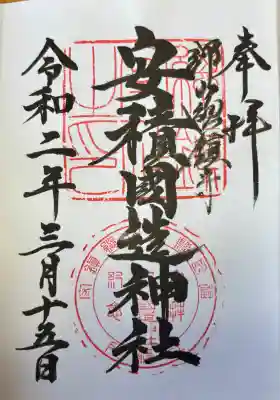 奉拝
郡山總鎮守
安積國造神社
令和二年三月十五日